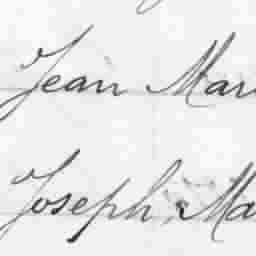 Jean Mar
Joseph Ma